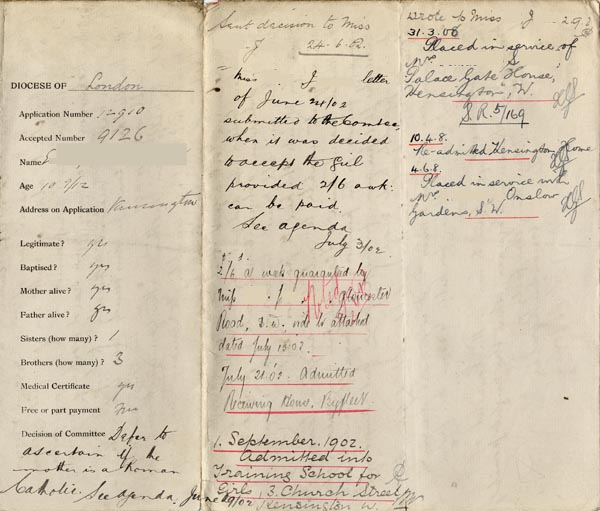 DIOCESE OF London
Application Number 12910
Accepted Number 9126
Name E
Age 10 7/12
Address on Application Kensington
Legitimate? yes
Baptised? yes
Mother alive? yes
Father alive? yes
Sisters (how many)? 1
Brothers (how many)? 3
Medical Certificate yes
Free or part payment Free
Decision of Committee Defer to
ascertain if the
mother is a Roman
Catholic. See agenda. June 19/02
Sent decision to Miss
J 24-6.02.
Miss J letter
of June 24/02
submitted to the Comtee,
when it was decided
to accept the girl
provided 2/6 a wk.
can be paid.
See agenda
July 3/02.
2/6 a week guaranteed by
Miss J, Gloucester
Road, S.W. vide attached
dated July 18.02.
July 21.02. Admitted
Receiving House, Byfleet
1. September. 1902.
Admitted into
Training School for
Girls, 3. Church Street,
Kensington W.
Wrote to Miss J
31.3.06
Placed in service of
Mrs S
Palace Gate House,
Kensington, W.
S.R. 5/169
10.4.8.
Re-admitted Kensington Home
4.6.8.
Placed in service with
Mrs Onslow
Gardens, S.W.